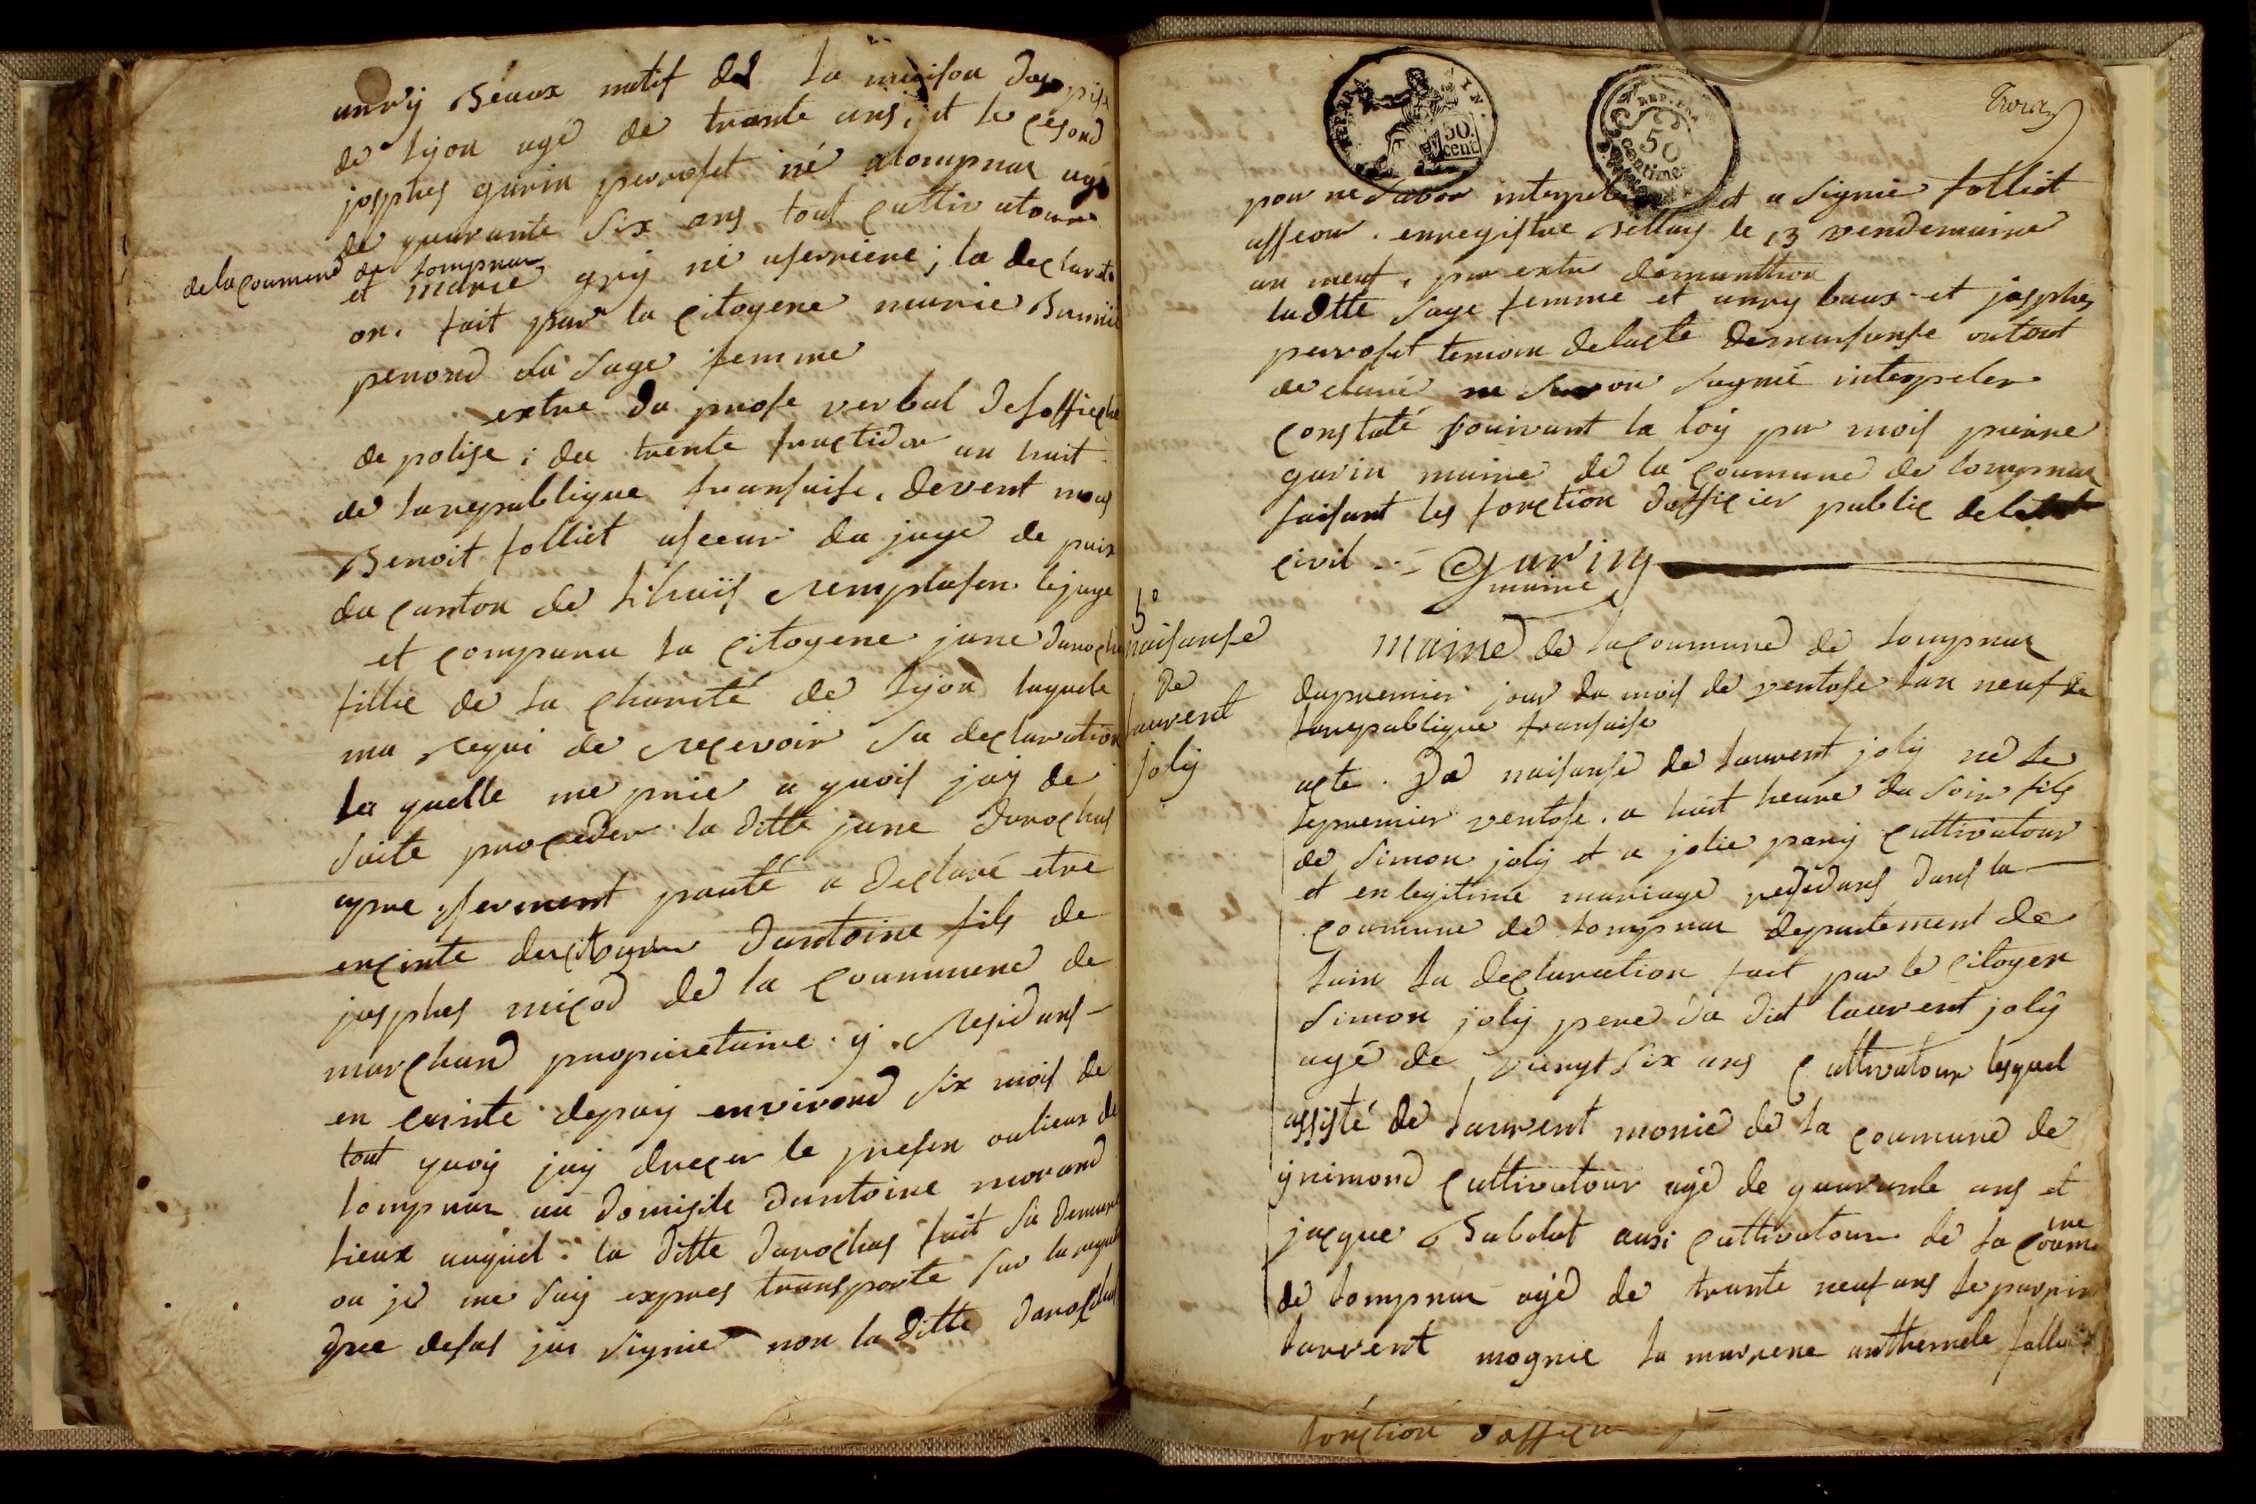 anry Béaux natif de la maison dospise
de lijon agé de trante ans, et le cegond
josphes garin parrosit né alompnax agé
de quarante six ans tout cultivatour
de la coumene de lompnax
et marie gry né aserriere ; la declarati
on. fait par la citoyene marie Bunnie
penond sá sage femme
extre du prose verbal de soffiche
de polise ; du trente fructidor an huit
de la republique fransaise. devent mois
Benoit folliet aseeur du juge de paix
du canton de lihuis remplasen le juge
et comparu la citoyene jane darochas
fillie de la charité de lijon laquele
ma requi de recevoir sa declaration
la quelle me prie a quois jaij de
suite proceder la ditte jane darochas
apre serment prauté a declaré etre
encinte du citoyen dantoine fils de
josphes micod de la coummene de
marchand propiretaire y. residans -
en ceinte depuij environd six mois de
tout quoij jaij drecer le presen oulieux de
lompnax au domisile dantoine morand
lieux auquel. la ditte darochas fait sa demure
ou je me suij expres transporte sur la requi
que desus jai signié non la ditte darochas
Troix
REP. FRA.
50.
cent.
REP. FRA.
50
centime
por ne savoir interpeler et a signié folliet
asseour. enregistre Belley le 13 vendemaire
an neuf, par extre demanttion
la dtte sage femme et anry baux et josphes
parrosit temoin de lacte demaisanse ontout
declaré ne savoir sagnié interpeler
constaté souivant la loij par mois pierre
garin maire de la coumune de lompnax
faisant les fonction dofficier public de letat
civil - = Garin
maire
5º
naisanse
de
laurent
jolij
maire de la coumune de lompnax
du premier jour du mois de ventose lan neuf de
la republique fransaise
acte. De naisanse de laurent jolij né le
le premier ventose. a huit heure du soir fils
de simon jolij et a jolie parij cultivatour
et en legitime mariage residans dans la
coumune de lompnax departement de
lain la declaration fait par le citoyen
simon jolij pere du dit laurent jolij
agé de viengt six ans cultivatour lesquel
assisté de laurent monié de la coumune de
ynimond cultivatour agé de quarante ans et
jacque Babolat ausi cultivatour de la coumune
de lompnax agé de trante neuf ans le parrin
laurent mognie la marrene anthemele
fonction dofficier